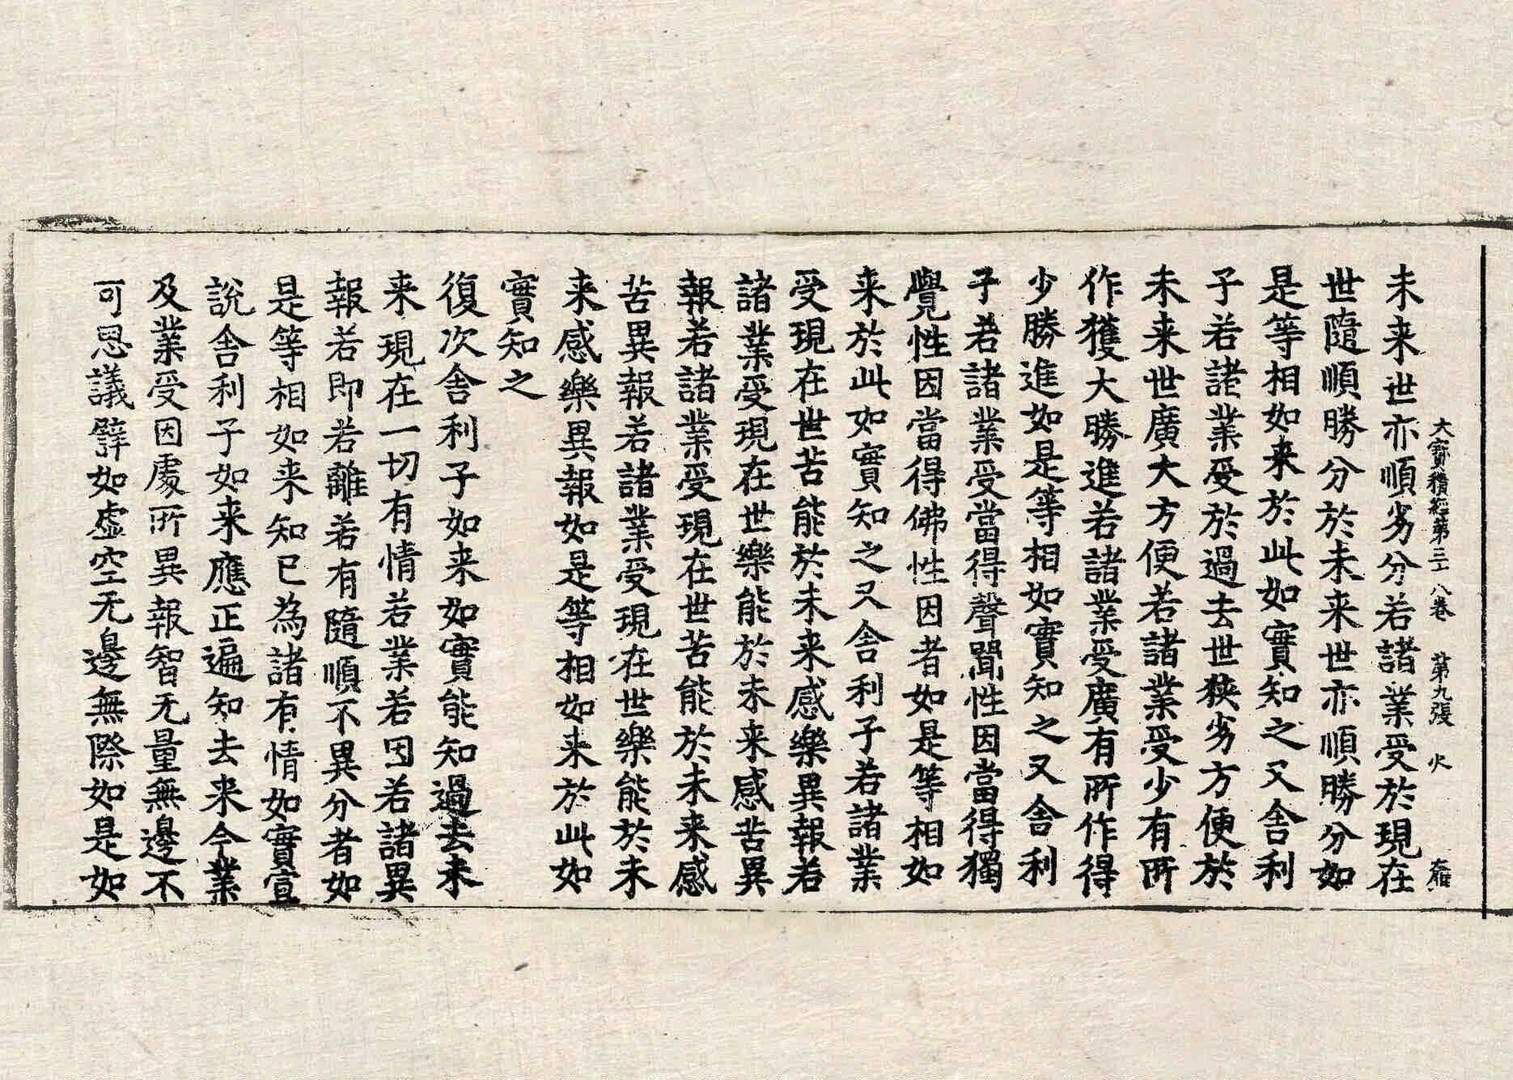 大寶積經第三十八卷 第九張 火
未来世亦順劣分若諸業受於現在
世隨順勝分於未来世亦順勝分如
是等相如来於此如實知之又舍利
子若諸業受於過去世狹劣方便於
未来世廣大方便若諸業受少有所
作獲大勝進若諸業受廣有所作得
少勝進如是等相如實知之又舍利
子若諸業受當得聲聞性因當得獨
覺性因當得佛性因者如是等相如
来於此如實知之又舍利子若諸業
受現在世苦能於未来感樂異報若
諸業受現在世樂能於未来感苦異
報若諸業受現在世苦能於未来感
苦異報若諸業受現在世樂能於未
来感樂異報如是等相如来於此如
實知之
復次舍利子如来如實能知過去未
来現在一切有情若業若因若諸異
報若即若離若有隨順不異分者如
是等相如来知已為諸有情如實宣
說舍利子如来應正遍知去来今業
及業受因處所異報智无量無邊不
可思議譬如虛空无邊無際如是如